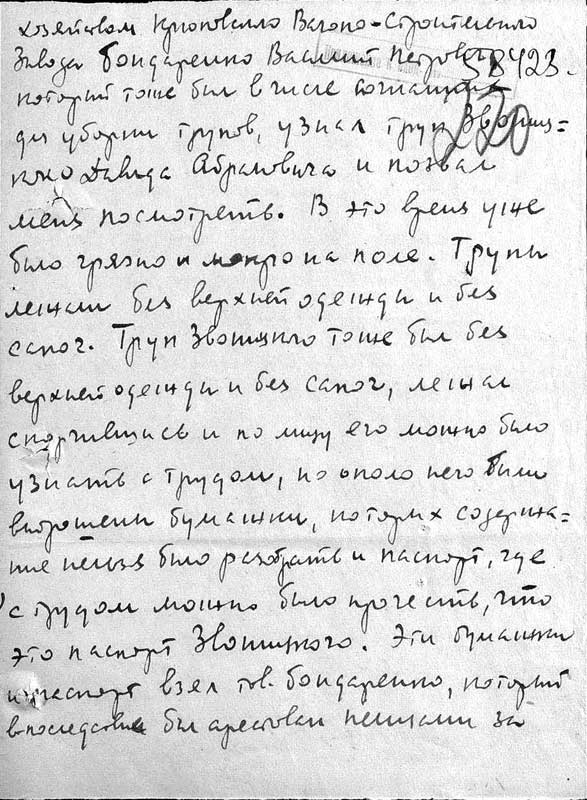 хозяйством Крюковского Вагоно-Строительного
Завода Бондаренко Василий Петрович
58423.
который тоже был в числе согнанных
220
для уборки трупов, узнал труп Звониц=
кого Давида Абрамовича и позвал
меня посмотреть. В это время уже
было грязно и мокро на поле. Трупы
лежали без верхней одежды и без
сапог. Труп Звоницкого тоже был без
верхней одежды и без сапог, лежал
скорчившись и по лицу его можно было
узнать с трудом, но около него были
выброшены бумажки, которых содержа=
ние нельзя было разобрать и паспорт, где
с трудом можно было прочесть, что
это паспорт Звоницкого. Эти бумажки
и паспорт взял тов. Бондаренко, который
впоследствие был арестован немцами за